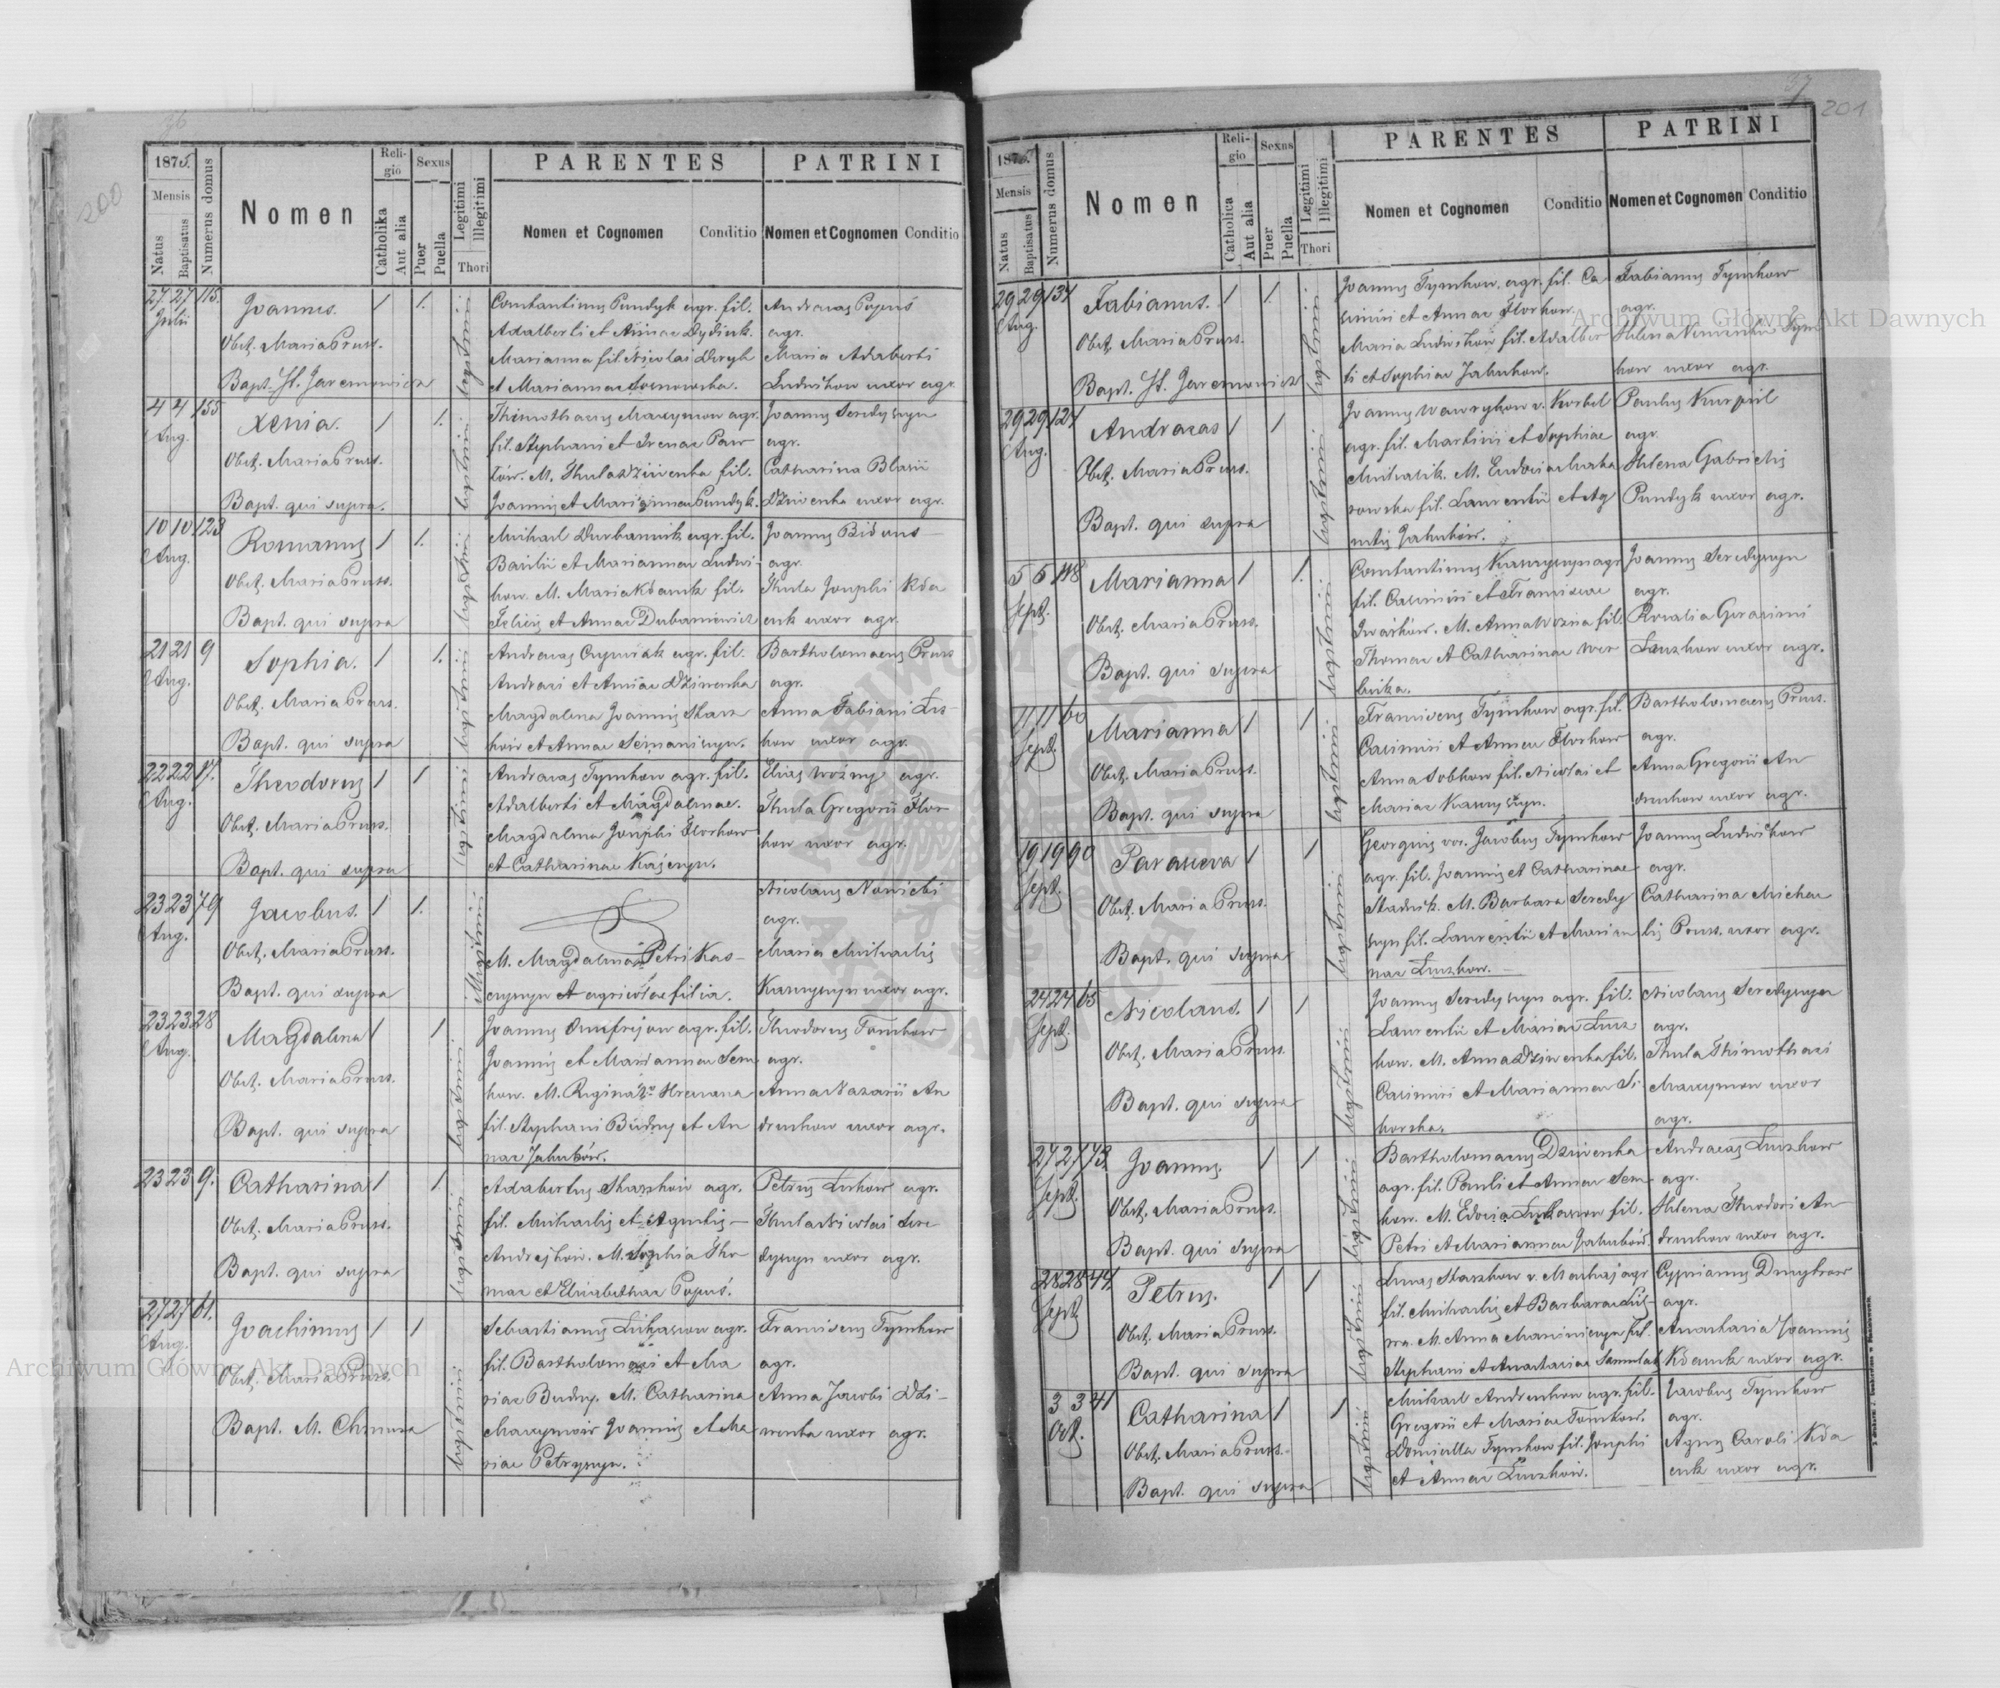 36
200
1875.
Mensis
Natus
Baptisatus
Numerus domus
Nomen
Religio
Catholika
Aut alia
Sexus
Puer
Puella
Legitimi
Illegitimi
Thori
PARENTES
Nomen et Cognomen
Conditio
PATRINI
Nomen et Cognomen
Conditio
27 27 115.
Julii
Joannes. 1 1.
Obst. Maria Pruss.
Bapt. St. Jaremowicz
legitimi
Constantinus Pundyk agr. fil.
Adalberti et Annae Dydiuk.
Marianna fil. Nicolai Diryk
et Mariannae Sosnowska.
Andreas Popuś
agr.
Maria Adalberti
Ludwikow uxor agr.
4 4 155
Aug.
Xenia. 1 1.
Obst. Maria Pruss.
Bapt. qui supra.
Thimothaeus Maxymow agr.
fil. Stephani et Irenae Paw
łów. M. Thecla Dziwenka fil.
Joannis et Mariannae Pundyk.
Joannes Seredyszyn
agr.
Catharina Blasii
Dziwenka uxor agr.
10 10 123
Aug.
Romanus 1 1.
Obst. Maria Pruss.
Bapt. qui supra
Michael Durbaniuk agr. fil.
Basilii et Mariannae Ludwi-
kow. M. Maria Kdaniuk fil.
Felicis et Annae Dubaniewicz
Joannes Bidny
agr.
Thecla Josephi Kda
niuk uxor agr.
21 21 9
Aug.
Sophia. 1 1.
Obst. Maria Pruss.
Bapt. qui supra
Andreas Czymiak agr. fil.
Andreae et Annae Dziwenka
Magdalena Joannis Skasz
kow et Annae Semaniszyn.
Bartholomaeus Pruss
agr.
Anna Fabiani Lus-
kow uxor agr.
22 22 17.
Aug.
Theodorus 1 1
Obst. Maria Pruss.
Bapt. qui supra
Andreas Tymkow agr. fil.
Adalberti et Magdalenae.
Magdalena Josephi Florkow
et Catharinae Kaśczyn.
Elias Woźny agr.
Thecla Gregorii Flor-
kow uxor agr.
23 23 79
Aug.
Jacobus. 1 1.
Obst. Maria Pruss.
Bapt. qui supra
M. Magdalena Petri Kas-
czyszyn et agricolae filia.
Nicolaus Nowicki
agr.
Maria Michaelis
Kaszyszyn uxor agr.
23 23 28
Aug.
Magdalena 1 1
Obst. Maria Pruss.
Bapt. qui supra
Joannes Onufrijow agr. fil.
Joannis et Mariannae Sem
kow. M. Regina
fil. Stephani Budny et An
nae Jakubów.
Theodorus Tomkow
agr.
Anna Nazarii An
druchow uxor agr.
23 23 9.
Catharina 1 1.
Obst. Maria Pruss.
Bapt. qui supra
Adalbertus Skaszkow agr.
fil. Michaelis et Agnetis
Andrejkow. M. Sophia Tho
mae et Elisabethae Popuś.
Petrus Lukow agr.
Thecla Nicolai Sere
dyszyn uxor agr.
27 27 61.
Aug.
Joachimus 1 1
Obst. Maria Pruss.
Bapt. M. Chmura
Sebastianus Lukasiow agr.
fil. Bartholomaei et Ma
riae Budny. M. Catharina
Maxymow Joannis et Ma
riae Petryszyn.
Franciscus Tymkow
agr.
Anna Jacobi Dzi-
wenka uxor agr.
37
201
1875
Mensis
Natus
Baptisatus
Numerus domus
Nomen
Religio
Catholica
Aut alia
Sexus
Puer
Puella
Legitimi
Illegitimi
Thori
PARENTES
Nomen et Cognomen
Conditio
PATRINI
Nomen et Cognomen
Conditio
29 29 134
Aug.
Fabianus. 1 1.
Obst. Maria Pruss.
Bapt. St. Jaremowicz
Joannes Tymkow. agr. fil. Ca-
simiri et Annae Florkow
Maria Ludwikow fil. Adalber
ti et Sophiae Jakubow.
Fabianus Tymkow
agr.
Helena Tym
kow uxor agr.
29 29 124
Aug.
Andreas 1 1
Obst. Maria Pruss.
Bapt. qui supra
Joannes Wawrykow v. Korbel
agr. fil. Martini et Sophiae
Michalik. M. Eudoxia Maka
rowska fil. Laurentii et Ag
netis Jakubów.
Paulus Kurpiil
agr.
Helena Gabrielis
Pundyk uxor agr.
5 5 118
Sept.
Marianna 1 1.
Obst. Maria Pruss.
Bapt. qui supra
Constantinus Kaszyszyn agr
fil. Casimiri et Franciscae
Iwaśków. M. Anna Woźna fil.
Thomae et Catharinae Wer
bicka.
Joannes Seredyszyn
agr.
Rosalia Gerasimi
Luczkow uxor agr.
11 11 60
Sept.
Marianna 1 1
Obst. Maria Pruss.
Bapt. qui supra
Franciscus Tymkow agr. fil.
Casimiri et Annae Florkow
Anna Sobkow fil. Nicolai et
Mariae Kaszyszyn.
Bartholomaeus Pruss.
agr.
Anna Gregorii An
druchow uxor agr.
19 19 90
Sept.
Parasceva 1 1
Obst. Maria Pruss.
Bapt. qui supra
Georgius vor. Jacobus Tymkow
agr. fil. Joannis et Catharinae
Stadnik. M. Barbara Seredy
szyn fil. Laurentii et Marian
nae Luczkow.
Joannes Ludwikow
agr.
Catharina Michae
lis Pruss. uxor agr.
24 24 65
Sept.
Nicolaus. 1 1
Obst. Maria Pruss.
Bapt. qui supra
Joannes Seredyszyn agr. fil.
Laurentii et Mariae Lucz
kow. M. Anna Dziwenka fil.
Casimiri et Mariannae Si
korska.
Nicolaus Seredyszyn
agr.
Thecla Thimothaei
Maxymow uxor
agr.
27 27 73
Sept.
Joannes. 1 1
Obst. Maria Pruss.
Bapt. qui supra
Bartholomaeus Dziwenka
agr. fil. Pauli et Annae Sem
kow. M. Edoxia Lukasiow fil.
Petri et Mariannae Jakubów.
Andreas Luczkow
agr.
Helena Theodori An
druchow uxor agr.
28 28 44.
Sept.
Petrus. 1 1
Obst. Maria Pruss.
Bapt. qui supra
Lucas Skaszkow v. Mackaj agr
fil. Michaelis et Barbarae
M. Anna fil.
Stephani et Anastasiae
Cyprianus Dmytrow
agr.
Anastasia Joannis
Kdaniuk uxor agr.
3 3 41
Oct.
Catharina 1 1
Obst. Maria Pruss.
Bapt. qui supra
Michael Andruchow agr. fil.
Gregorii et Mariae Tomkow.
Domicella Tymkow fil. Josephi
et Annae Luczkow.
Jacobus Tymkow
agr.
Agnes Caroli Kda
niuk uxor agr.
Archiwum Główne Akt Dawnych
Archiwum Główne Akt Dawnych